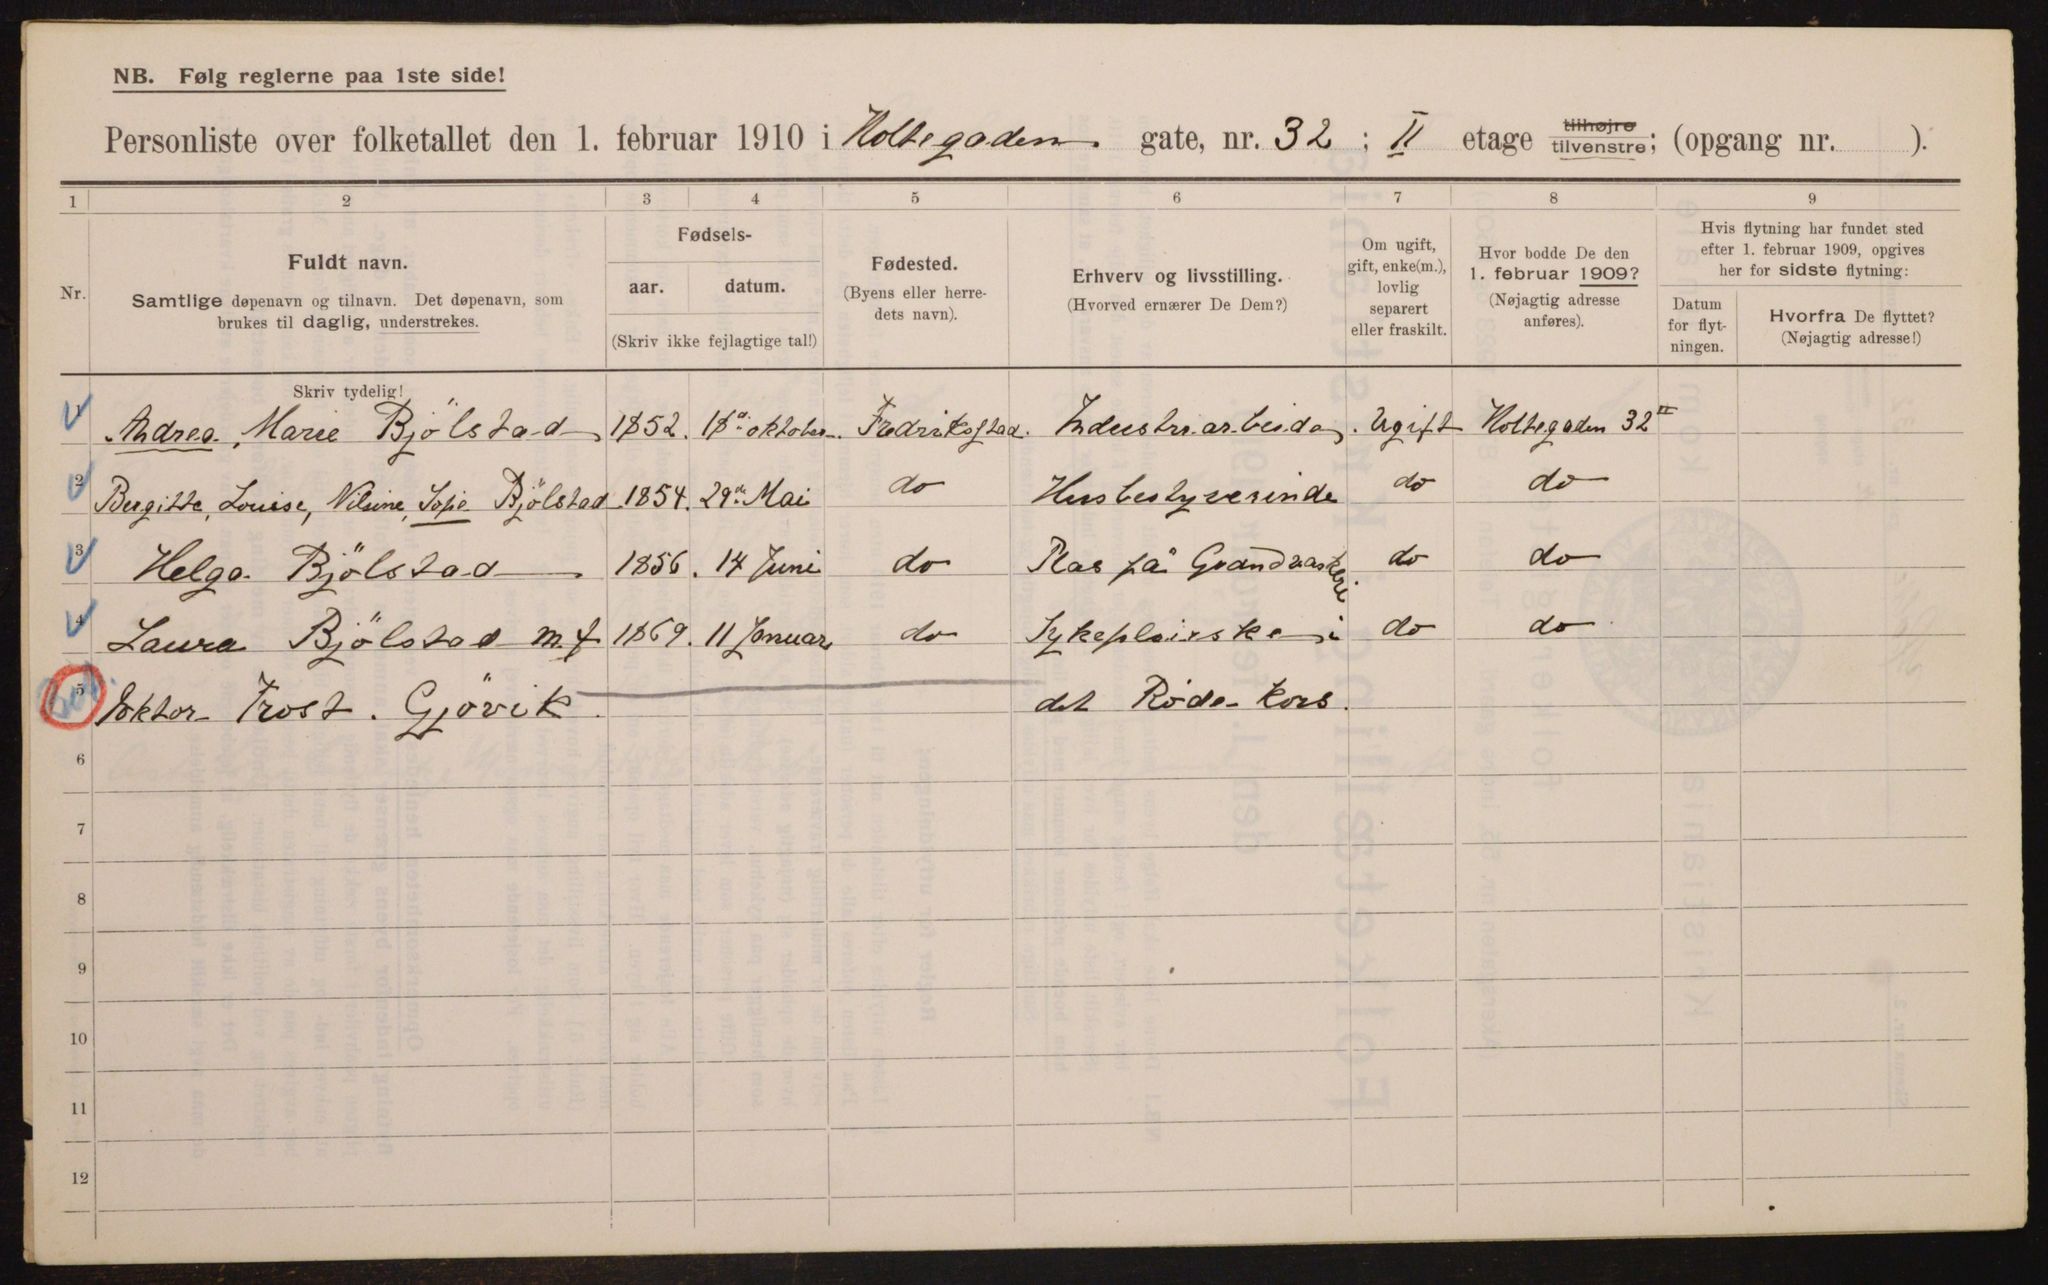 NB. Følg reglerne paa 1ste side!
Personliste over folketallet den 1. februar 1910 i Holtegaden gate, nr. 32 ; II etage tilhøjre tilvenstre; (opgang nr. ).
1 2 3 4 5 6 7 8 9
Nr.
Fuldt navn.
Samtlige døpenavn og tilnavn. Det døpenavn, som
brukes til daglig, understrekes.
Fødsels-
aar. datum.
(Skriv ikke fejlagtige tal!)
Fødested.
(Byens eller herre-
dets navn).
Erhverv og livsstilling.
(Hvorved ernærer De Dem?)
Om ugift,
gift, enke(m.),
lovlig
separert
eller fraskilt.
Hvor bodde De den
1. februar 1909?
(Nøjagtig adresse
anføres).
Hvis flytning har fundet sted
efter 1. februar 1909, opgives
her for sidste flytning:
Datum
for flyt-
ningen.
Hvorfra De flyttet?
(Nøjagtig adresse!)
Skriv tydelig!
1 Andrea, Marie Bjölstad 1852. oktober. Fredrikstad. Industriarbeider. Ugift Holtegaden 32 II
2 Bergitte, Louise, Nilsine, Sofie Bjölstad 1854. 29de Mai do Husbestyrerinde do do
3 Helga Bjölstad 1856. 14 Juni do Plas på Grandvaskeri do do
4 Laura Bjölstad m.f 1869. 11 Januar do Sykepleierske i do do
5 Doktor Frost. Gjövik. det Röde-Kors.
6
7
8
9
10
11
12